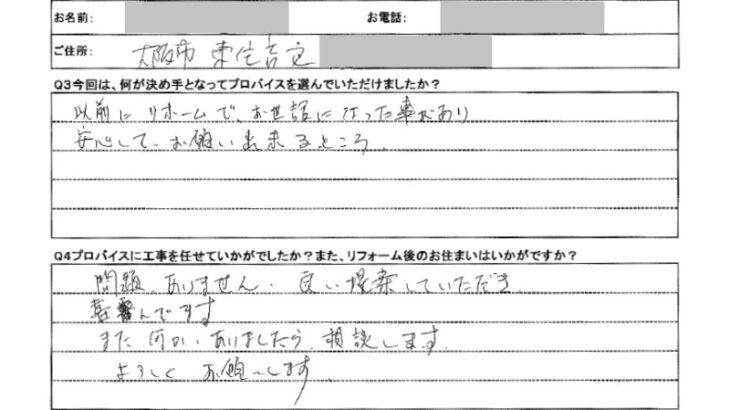 お名前: お電話:
ご住所: 大阪市 東住吉区
Q3今回は、何が決め手となってプロバイスを選んでいただけましたか?
以前に リホームで、お世話に なった事があり
安心して、お願い出来るところ、
Q4プロバイスに工事を任せていかがでしたか?また、リフォーム後のお住まいはいかがですか?
問題、ありません、良い提案していただき、
喜んでます
また 何かありましたら、相談します。
よろしく お願いします。